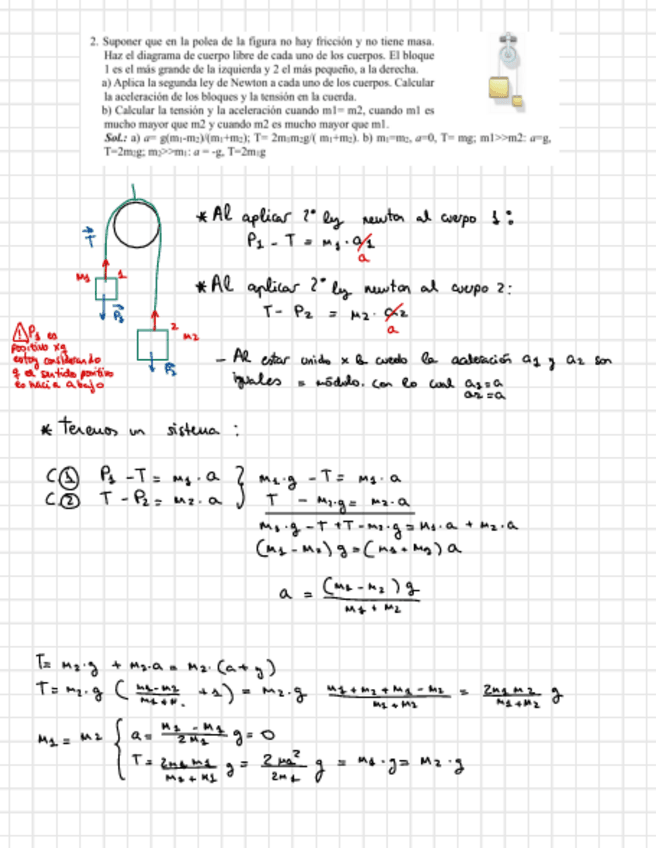 2. Suponer que en la polea de la figura no hay fricción y no tiene masa.
Haz el diagrama de cuerpo libre de cada uno de los cuerpos. El bloque
1 es el más grande de la izquierda y 2 el más pequeño, a la derecha.
a) Aplica la segunda ley de Newton a cada uno de los cuerpos. Calcular
la aceleración de los bloques y la tensión en la cuerda.
b) Calcular la tensión y la aceleración cuando m1= m2, cuando m1 es
mucho mayor que m2 y cuando m2 es mucho mayor que m1.
Sol.: a) a= g(m₁-m₂)/(m₁+m₂); T= 2m₁m₂g/( m₁+m₂). b) m₁=m₂, a=0, T= mg; m1>>m2: a=g,
T=2m₂g; m₂>>m₁: a = -g, T=2m₁g
* Al aplicar 2ª ley newton al cuerpo 1:
P₁ - T = m₁ · a₁
a
T
M1
1
P₁
2
M2
P₂
* Al aplicar 2ª ley newton al cuerpo 2:
T - P₂ = m₂ · a₂
a
⚠ P₁ es
positivo xq
estoy considerando
q el sentido positivo
es hacia abajo
- Al estar unido x la cuerda la aceleración a₁ y a₂ son
iguales = módulo. con lo cual a₁ = a
a₂ = a
* Tenemos un sistema :
C① P₁ - T = m₁ · a } m₁·g - T = m₁ · a
C.② T - P₂ = m₂ · a } T - m₂·g = m₂·a
m₁·g - T + T - m₂·g = m₁·a + m₂·a
(m₁ - m₂) g = (m₁ + m₂) a
a = (m₁ - m₂) g / m₁ + m₂
T = m₂·g + m₂·a = m₂·(a + g)
T = m₂·g ( m₁-m₂ / m₁+m. + 1 ) = m₂·g m₁ + m₂ + m₁ - m₂ / m₁ + m₂ = 2m₁ m₂ / m₁+m₂ g
m₁ = m₂ { a = m₁ - m₁ / 2m₁ g = 0
T = 2m₁ m₁ / m₁ + m₁ g = 2 m₁² / 2m₁ g = m₁ · g = m₂ · g